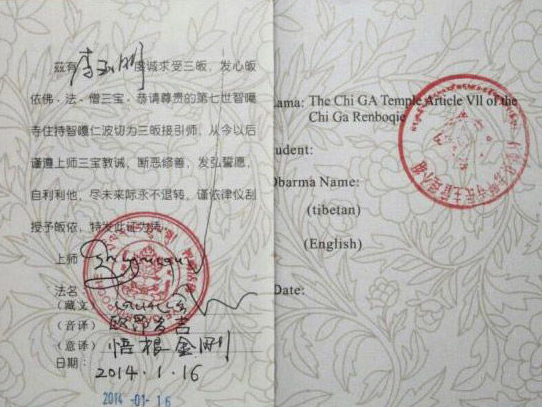 兹有李玉刚虔诚求受三皈，发心皈
依佛、法、僧三宝。恭请尊贵的第七世智噶
寺住持智噶仁波切为三皈接引师，从今以后
谨遵上师三宝教诫，断恶修善，发弘誓愿，
自利利他，尽未来际永不退转，谨依律仪剃
授予皈依，特发此证为凭。
上师
法名：
（藏文）
（音译）
（意译）悟根金刚
日期：2014.1.16
2014 -01- 16
Lama: The Chi GA Temple Article Vll of the
Chi Ga Renboqie
Student:
Dharma Name:
(tibetan)
(English)
Date: